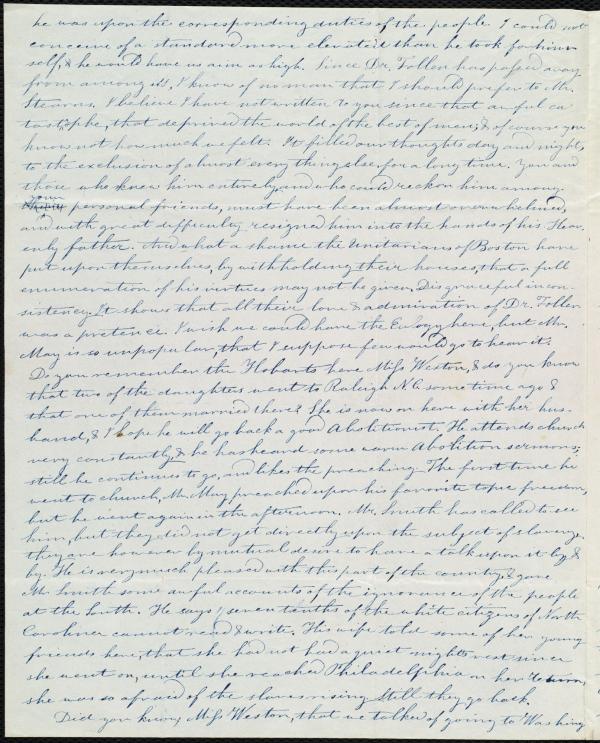 he was upon the corresponding duties of the people. I could not
conceive of a standard more elevated than he took for him
self, & he would have us aim as high. Since Dr. Follen has passed away
from among us, I know of no man that I should prefer to Mr.
Stearns. I believe I have not written to you since that awful ca
tastrophe, that deprived the world of the best of men, & of course you
know not how much we felt. It filled our thoughts day and night,
to the exclusion of almost every thing else, for a long time. You and
those who knew him entirely, and who could reckon him among
your personal friends, must have been almost overwhelmed,
and with great difficulty resigned him into the hands of his Heav
enly father. And what a shame the Unitarians of Boston have
put upon themselves, by withholding their houses, that a full
enumeration of his virtues may not be given. Disgraceful incon-
sistency. It shows that all their love & admiration of Dr. Follen
was a pretence. I wish we could have the Eulogy here, but Mr.
May is so unpopular, that I suppose few would go to hear it.
Do you remember the Hobarts here Miss Weston, & do you know
that two of the daughters went to Raleigh N.C. some time ago &
that one of them married there? She is now on here with her hus-
band, & I hope he will go back a good Abolitionist. He attends church
very constantly, & he has heard some warm Abolition sermons;
still he continues to go, and likes the preaching. The first time he
went to church, Mr. May preached upon his favorite topic freedom,
but he went again in the afternoon. Mr. Smith has called to see
him, but they did not get directly upon the subject of slavery.
they are however by mutual desire to have a talk upon it by &
by. He is very much pleased with this part of the country, & gave
Mr. Smith some awful accounts of the ignorance of the people
at the South. He says, seven tenths of the white citizens of North
Carolina cannot read & write. His wife told some of her young
friends here, that she had not had a quiet nights rest since
she went on, until she reached Philadelphia on her return,
she was so afraid of the slaves rising. Still they go back.
Did you know, Miss Weston, that we talked of going to Washing